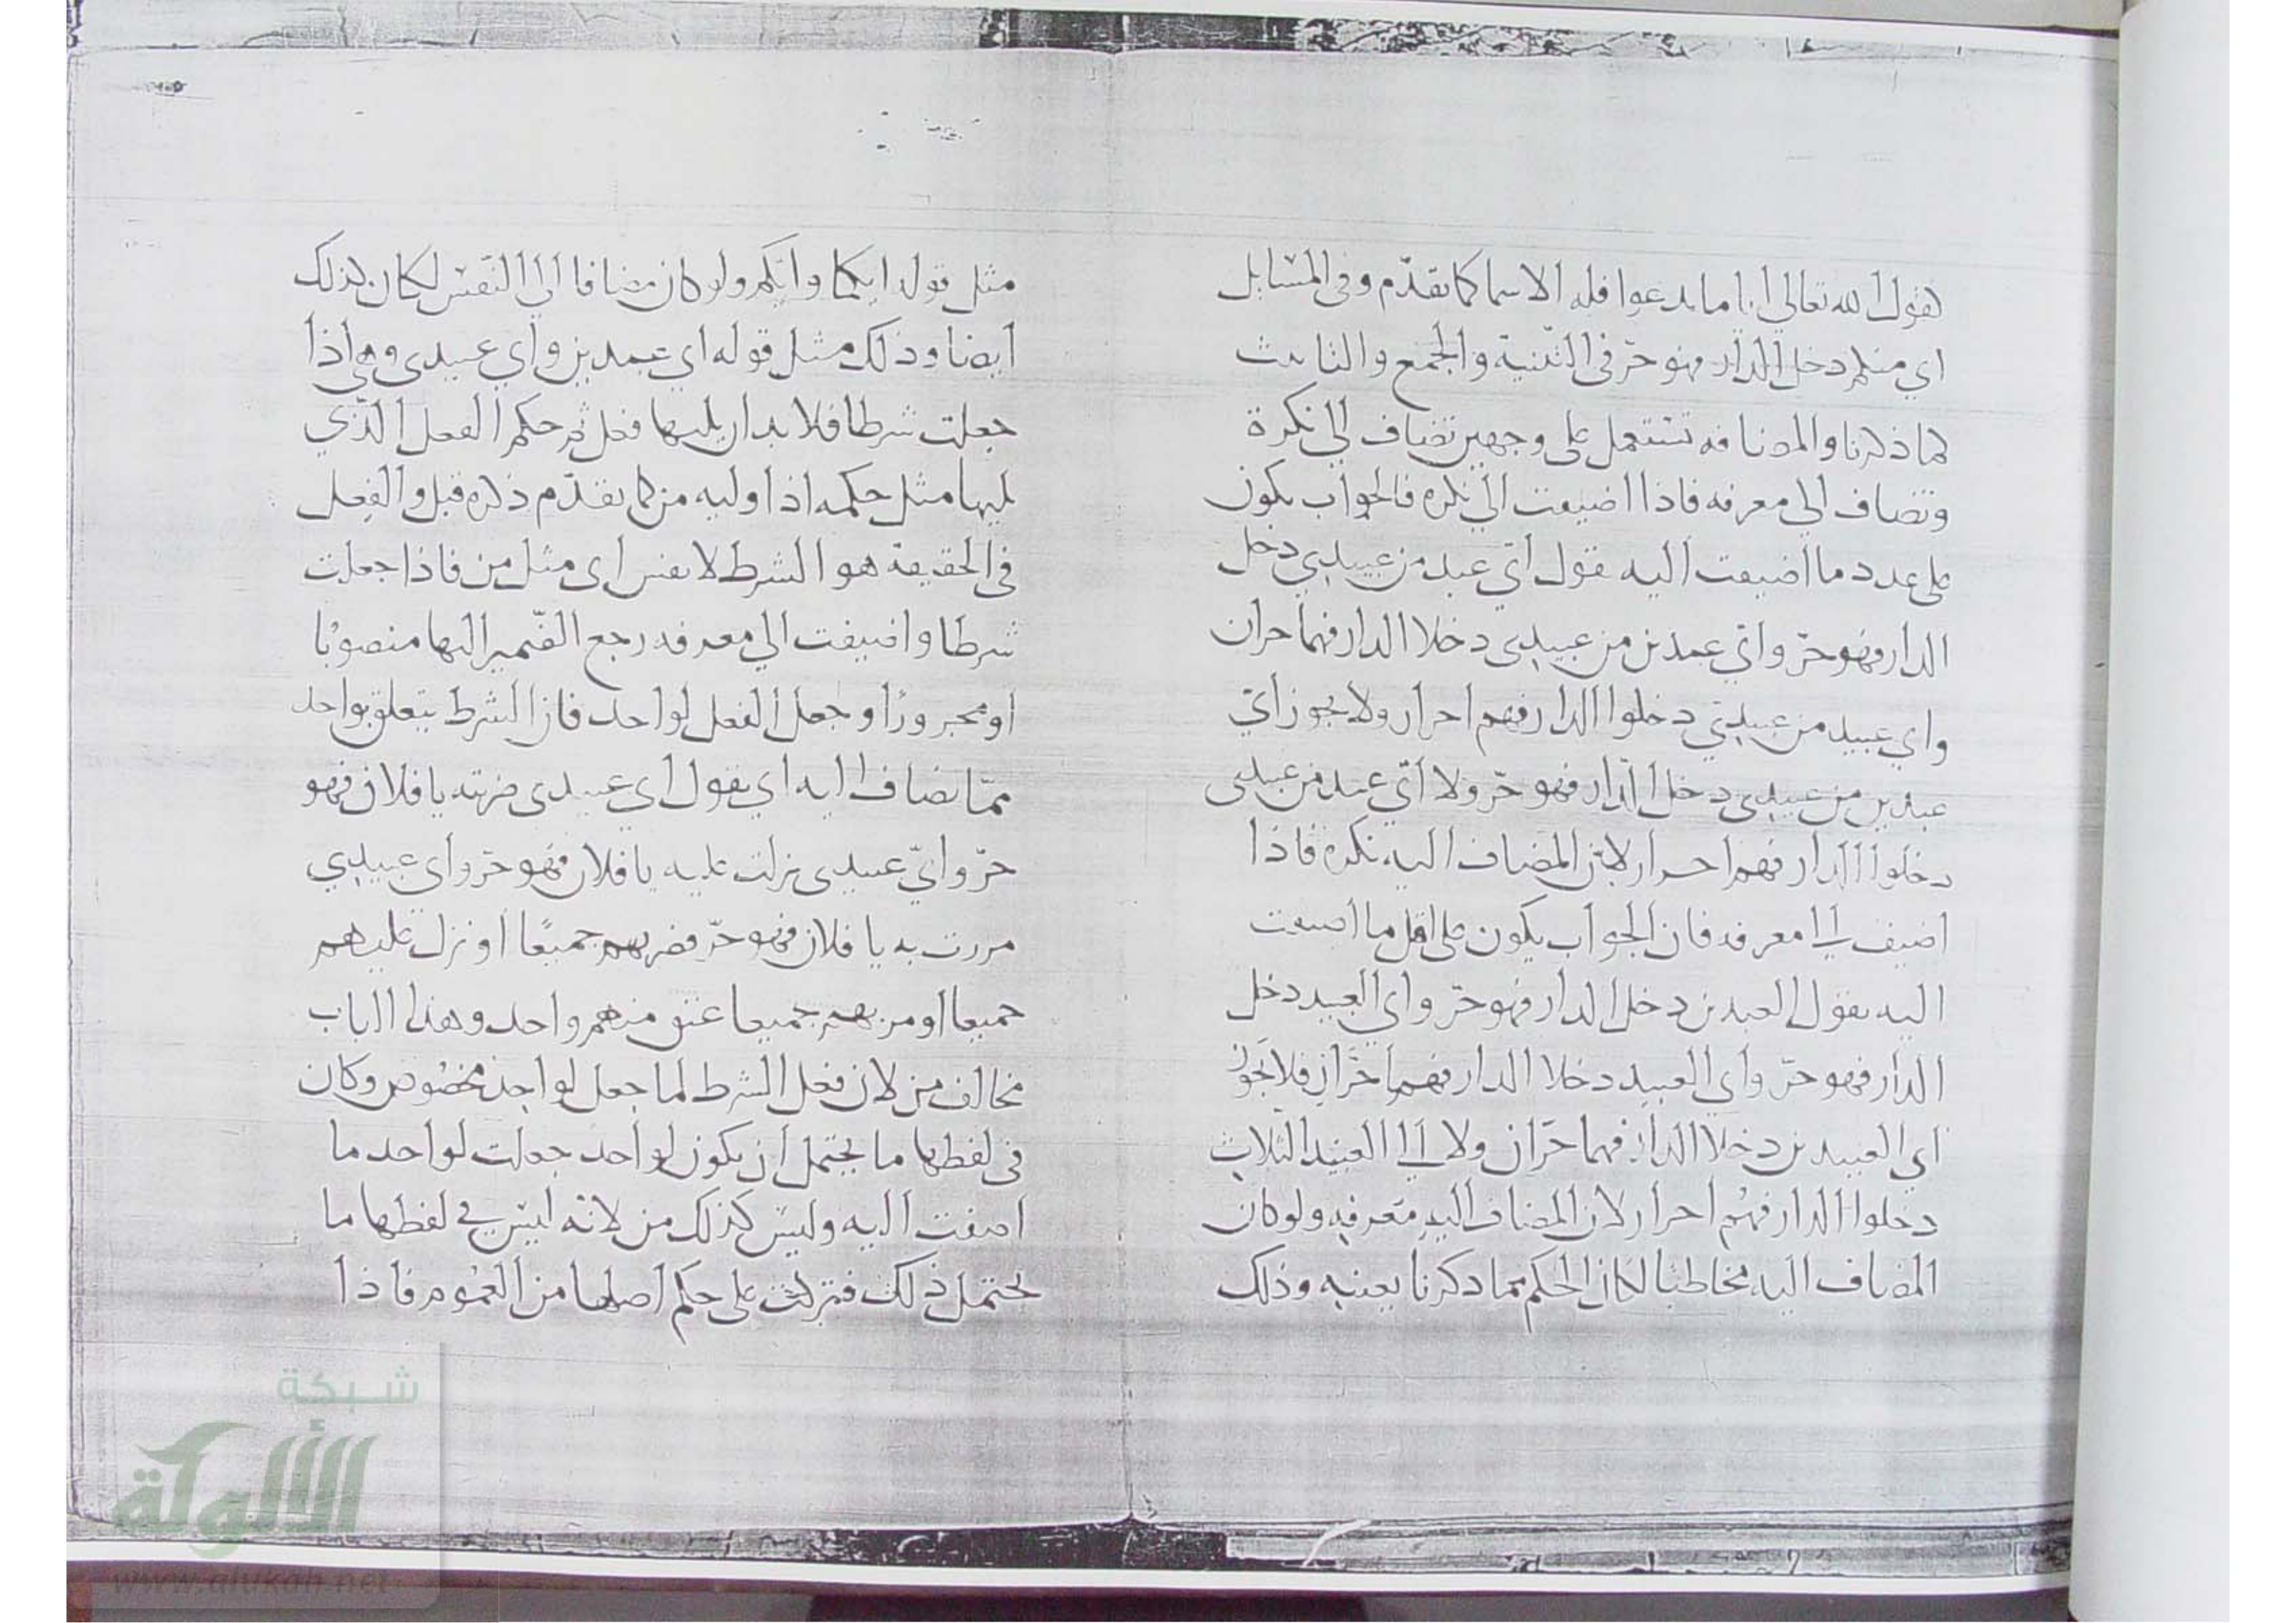 كقول الله تعالى أيا ما تدعوا فله الاسما كما تقدّم وفي المسايل
اي منكم دخل الدار فهو حرّ في التثنية والجمع والتانيث
كما ذكرنا والمضافه تستعمل على وجهين تضاف الى نكرة
وتضاف الى معرفه فاذا اضيفت الى نكره فالجواب يكون
على عدد ما اضيفت اليه تقول أيّ عبد من عبيدي دخل
الدار فهو حرّ وايّ عبدين من عبيدى دخلا الدار فهما حران
واي عبيد من عبيدي دخلوا الدار فهم احرار ولا يجوز ايّ
عبدين من عبيدى دخل الدار فهو حرّ ولا أيّ عبد من عبيدى
دخلوا الدار فهم احرار لان المضاف اليه نكره فاذا
اضيف الى معرفه فان الجواب يكون على اقل ما اضيفت
اليه تقول العبدين دخل الدار فهو حرّ واي العبيد دخل
الدار فهو حرّ واي العبيد دخلا الدار فهما حرّان فلا يجوز
اي العبيدين دخلا الدار فهما حرّان ولا الى العبيد الثلاث
دخلوا الدار فهم احرار لان المضاف اليه معرفه ولو كان
المضاف اليه مخاطبا لكان الحكم بما ذكرنا بعينه وذلك
مثل قوله ايكما وايكم ولو كان مضافا الى النفس لكان كذلك
أيضا وذلك مثل قوله اي عبدين واي عبيدى وهي اذا
جعلت شرطا فلا بد ان يليها فعل ثم حكم الفعل الذي
يليها مثل حكمه اذا وليه من كما تقدّم ذكره قبل والفعل
في الحقيقة هو الشرط لا نفس اى مثل من فاذا جعلت
شرطا واضيفت الى معرفه رجع الضمير اليها منصوبا
او مجرورا وجعل الفعل لواحد فان الشرط يتعلق بواحد
ممّا تضاف اليه اي تقول اي عبيدى ضربته يا فلان فهو
حرّ وايّ عبيدى نزلت عليه يا فلان فهو حرّ واى عبيدي
مررت به يا فلان فهو حرّ فضربهم جميعًا او نزل عليهم
جميعا او مر بهم جميعا عتق منهم واحد وهذا الباب
مخالف من لان فعل الشرط لما جعل لواحد مخصوص وكان
فى لفظها ما يحتمل ان يكون لواحد جعلت لواحد ما
اضفت اليه وليس كذلك من لانه ليس في لفظها ما
يحتمل ذلك فتركت على حكم اصلها من العموم فاذا
شبكة
الألوكة
www.alukah.net